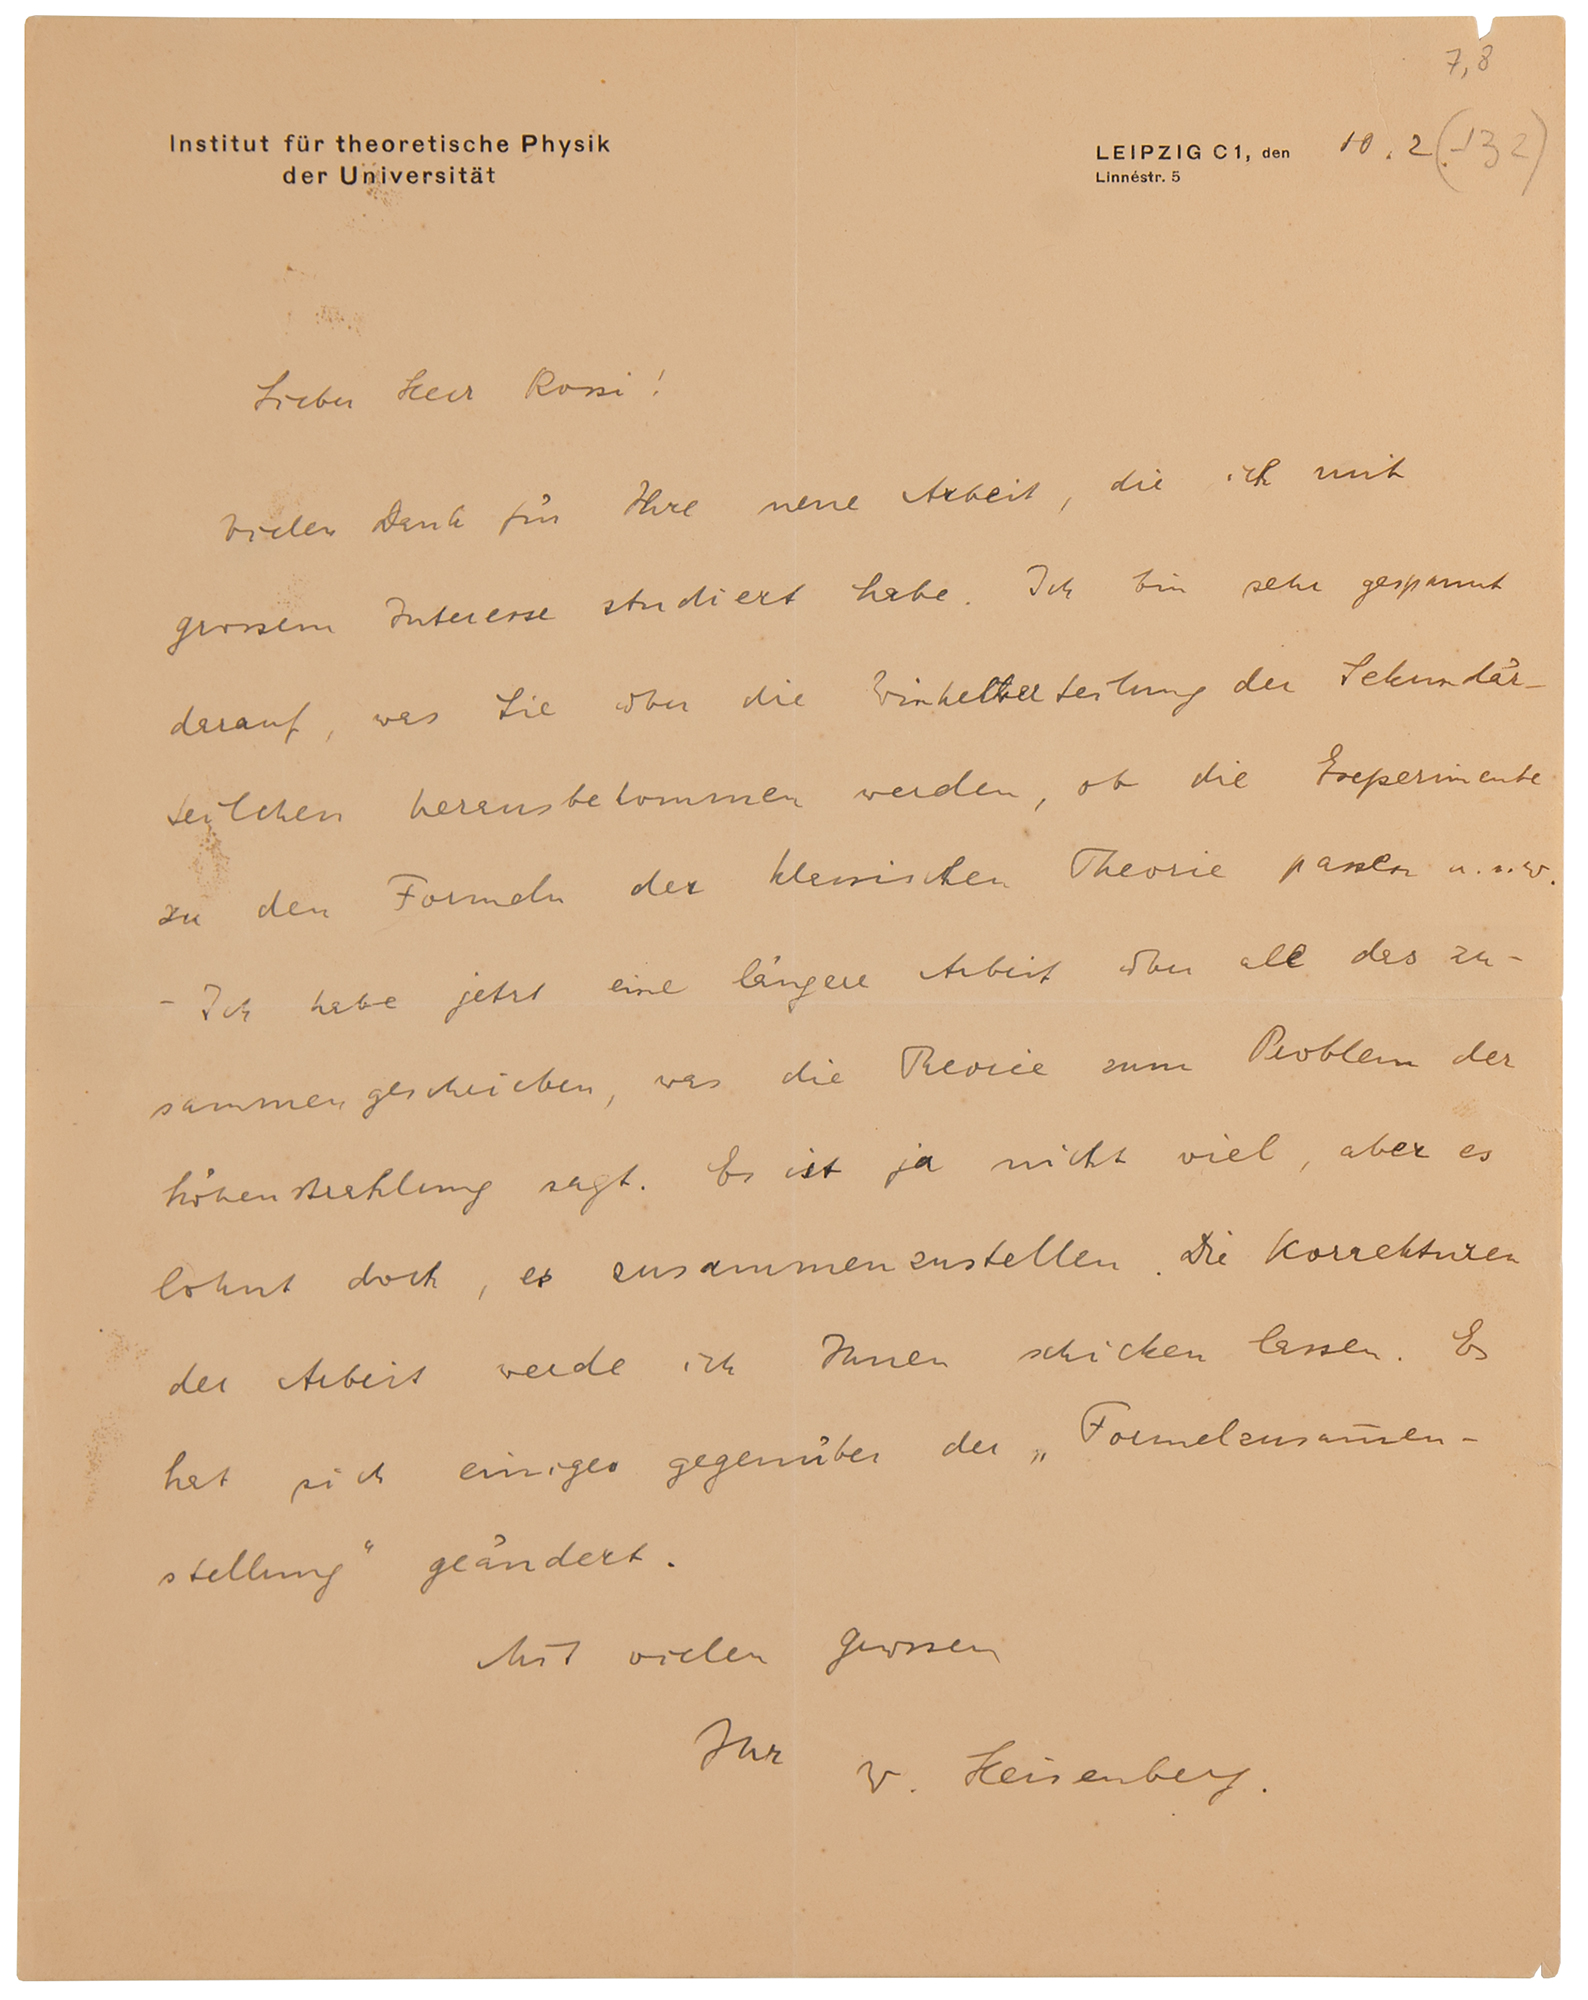 7,8
Institut für theoretische Physik
der Universität
LEIPZIG C1, den 10.2.(32)
Linnéstr. 5
Lieber Herr Rossi!
Vielen Dank für Ihre neue Arbeit, die ich mit
grossem Interesse studiert habe. Ich bin sehr gespannt
darauf, was Sie über die Winkelverteilung der Sekundär-
teilchen herausbekommen werden, ob die Experimente
zu den Formeln der klassischen Theorie passen u.s.w.
- Ich habe jetzt eine längere Arbeit über all das zu-
sammengeschrieben, was die Theorie zum Problem der
Höhenstrahlung sagt. Es ist ja nicht viel, aber es
lohnt doch, es zusammenzustellen. Die Korrekturen
der Arbeit werde ich Ihnen schicken lassen. Es
hat sich einiges gegenüber der „Formelzusam̅en-
stellung“ geändert.
Mit vielen Grüssen
Ihr W. Heisenberg.